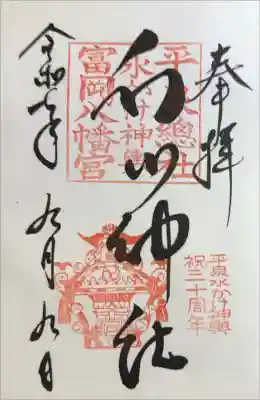 奉拝
白山神社
平泉總社
水かけ神輿
富岡八幡宮
平泉水かけ神輿
祝三十周年
令和七年 九月九日